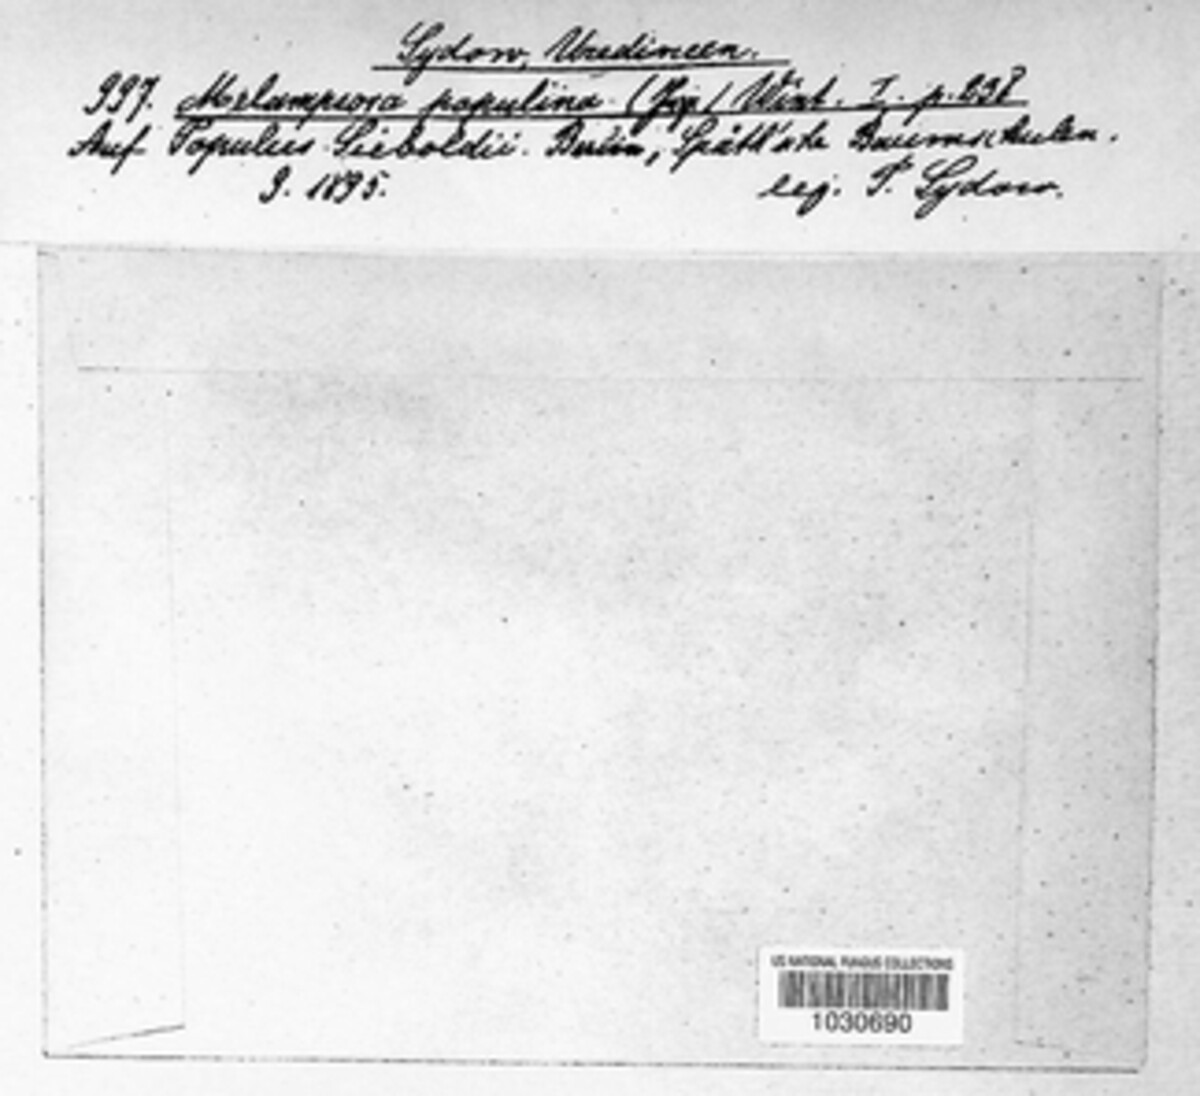 Sydow, Uredineen.
997. Melampsora populina (Jacq.) Wint. I. p. 238
Auf Populus Sieboldii. Berlin, Späth'sche Baumschulen.
9. 1895. leg. P. Sydow.
US NATIONAL FUNGUS COLLECTIONS
1030690